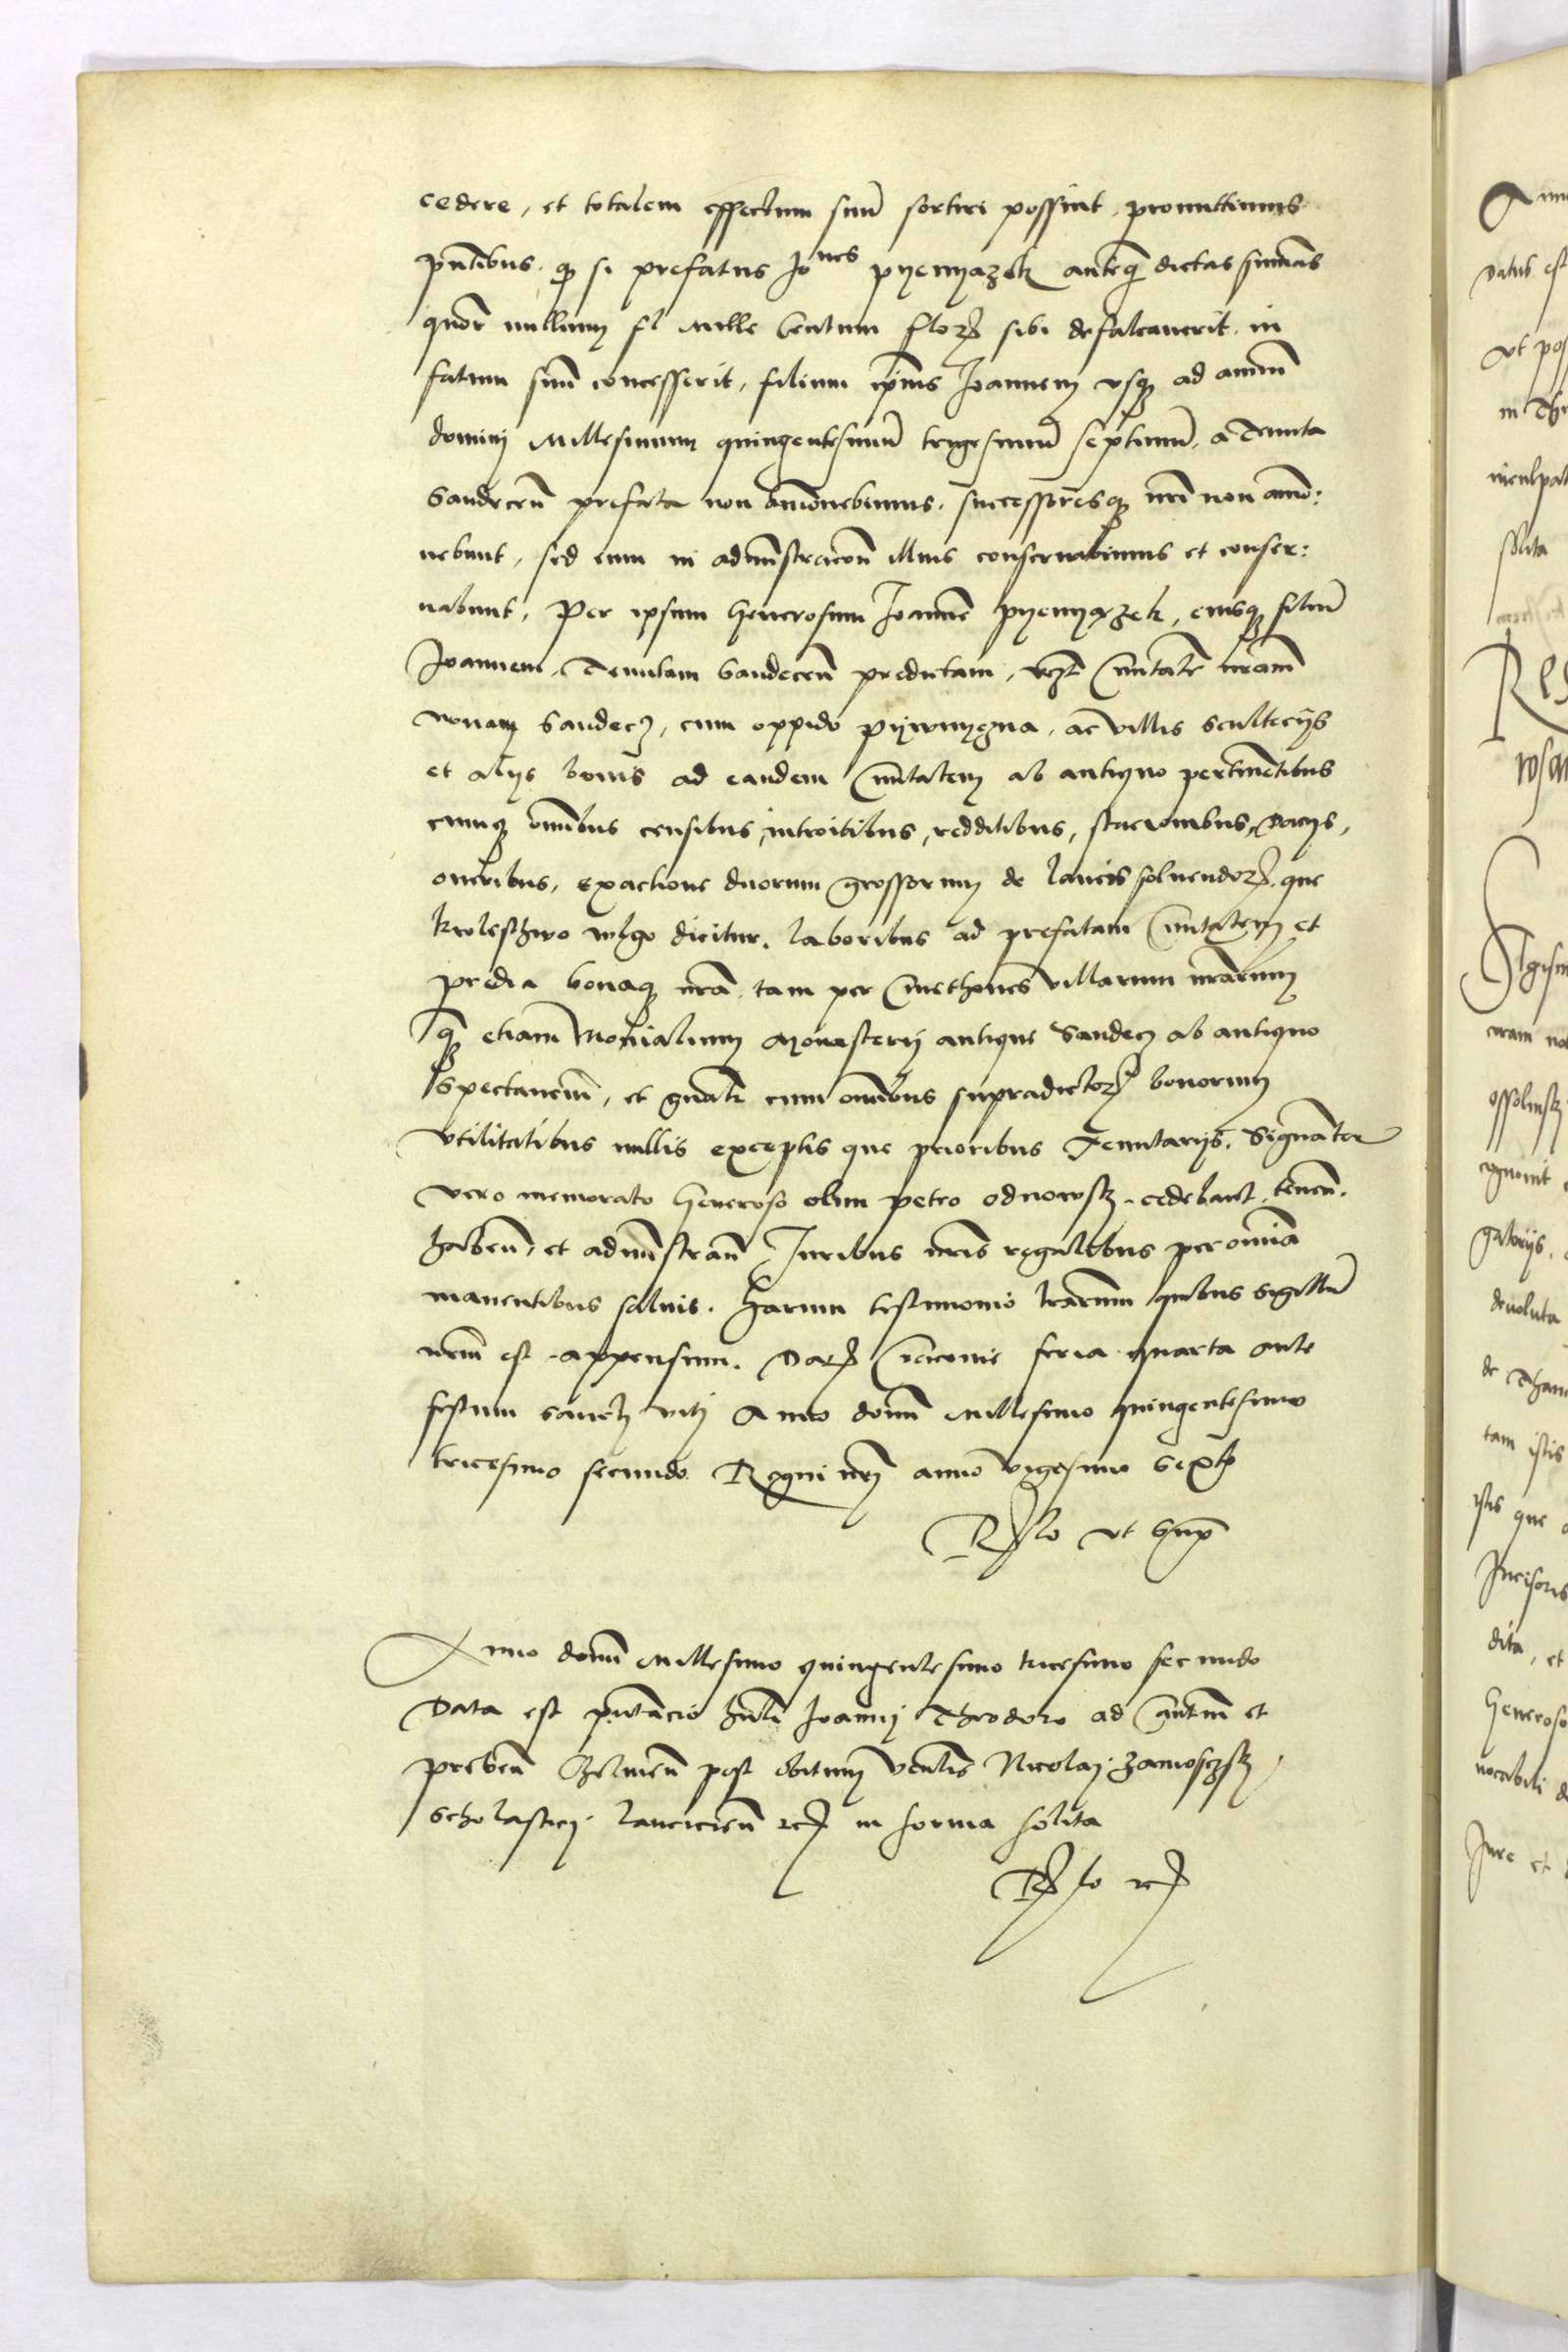 cedere, et totalem effectum suũ sortiri possint, promittimus
pñtibus, qđ si prefatus Joñes pyenyazek anteq̃ dictas sum̃as
quor̃ nullum sl mille Centum flor sibi defalcauerit, in
fatum suũ concesserit, filium ip̃ius Joannem vsqȝ ad annũ
dominj Millesimum quingentesimũ trigesimũ septimũ, a Tenuta
Sandeceñ prefata non amouebimus, successoresqȝ nr̃i non amo:
uebunt, sed eum in administracioñ illius conseruabimus et conser:
uabunt, Per ipsum Generosum Joannẽ pyenyązek, eiusqȝ filiũ
Joannem, Tenutam Sandeceñ predictam, Ciuitatẽ nr̃am
nouam Sandecȝ, cum oppido pywnyczna, ac villis scultecijs
et alijs bonis ad eandem Ciuitatem ab antiquo pertineñtibus
cumqȝ om̃ibus censibus, introitibus, redditibus, stacionibus, Dacijs,
oneribus, exactione duorum grossorum de laneis soluendor, que
krolesthwo vlgo dicitur, laboribus ad prefatam Ciuitatem et
predia bonaqȝ nr̃a, tam per Cmethones villarum nr̃arum
qȝ etiam Monialium Monasterij antique Sandecȝ ab antiquo
spectanciũ, et gñali cum om̃ibus supradictor bonorum
vtilitatibus nullis exceptis que prioribus Tenutarijs, Signanter
vero memorato Generoso olim petro odnowskj cedebant, teneñ.
habeñ, et administrañ Juribus nr̃is regalibus per om̃ia
manentibus saluis. Harum testimonio lr̃arum quibus sigillũ
nr̃m est appensum. Dat Cracouie feria quarta ante
festum sanctj vitj Anno domi Millesimo quingentesimo
tricesimo secundo Regni nr̃j anno vigesimo Sexto
Rlo vt Supra
Anno domi Millesimo quingentesimo tricesimo secundo
Data est pñtacio Joannj Theodoro ad et
prebeñ post obitum veñlis Nicolaj Zamosczskj
Scholasticj lancicieñ rc in forma solita
Rlo rc